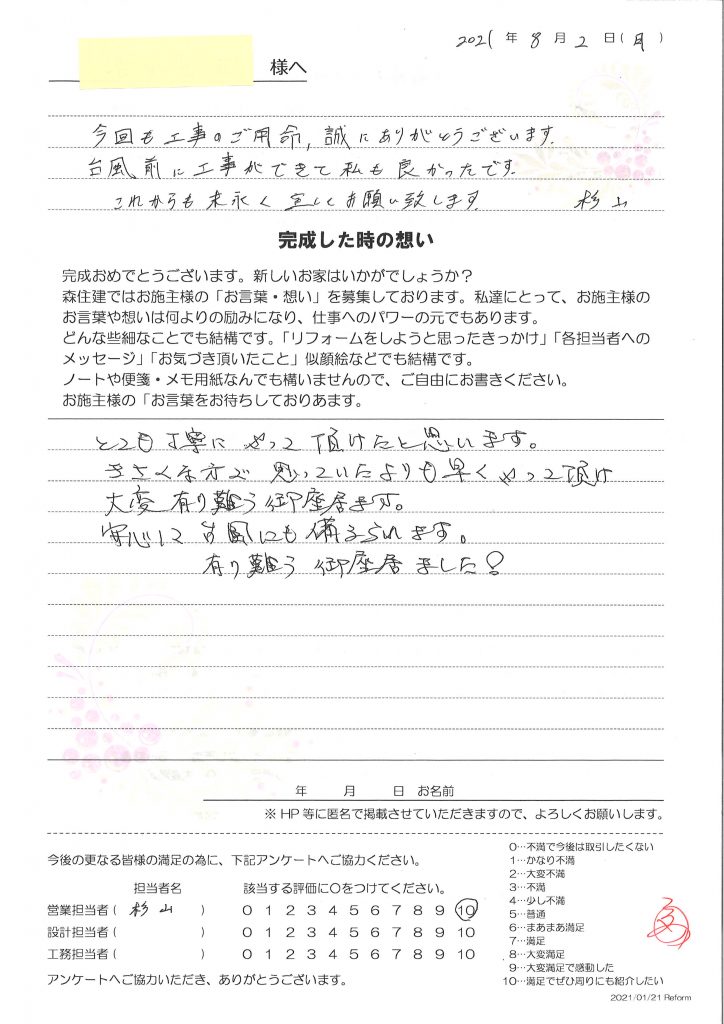 2021年 8月 2日(月)
様へ
今回も工事のご用命、誠にありがとうございます.
台風前に工事ができて私も良かったです.
これからも末永く宜しくお願い致します. 杉山
完成した時の想い
完成おめでとうございます。新しいお家はいかがでしょうか?
森住建ではお施主様の「お言葉・想い」を募集しております。私達にとって、お施主様の
お言葉や想いは何よりの励みになり、仕事へのパワーの元でもあります。
どんな些細なことでも結構です。「リフォームをしようと思ったきっかけ」「各担当者への
メッセージ」「お気づき頂いたこと」似顔絵などでも結構です。
ノートや便箋・メモ用紙なんでも構いませんので、ご自由にお書きください。
お施主様の「お言葉をお待ちしておりあます。
とても丁寧にやって頂けたと思います。
きさくな方で思っていたよりも早くやって頂け
大変有り難う御座居ます。
安心して台風にも備えられます。
有り難う御座居ました!
年 月 日 お名前
※HP等に匿名で掲載させていただきますので、よろしくお願いします。
今後の更なる皆様の満足の為に、下記アンケートへご協力ください。
担当者名 該当する評価に○をつけてください。
営業担当者( 杉山 ) 0 1 2 3 4 5 6 7 8 9 10
設計担当者( ) 0 1 2 3 4 5 6 7 8 9 10
工務担当者( ) 0 1 2 3 4 5 6 7 8 9 10
アンケートへご協力いただき、ありがとうございます。
0…不満で今後は取引したくない
1…かなり不満
2…大変不満
3…不満
4…少し不満
5…普通
6…まあまあ満足
7…満足
8…大変満足
9…大変満足で感動した
10…満足でぜひ周りにも紹介したい
2021/01/21 Reform